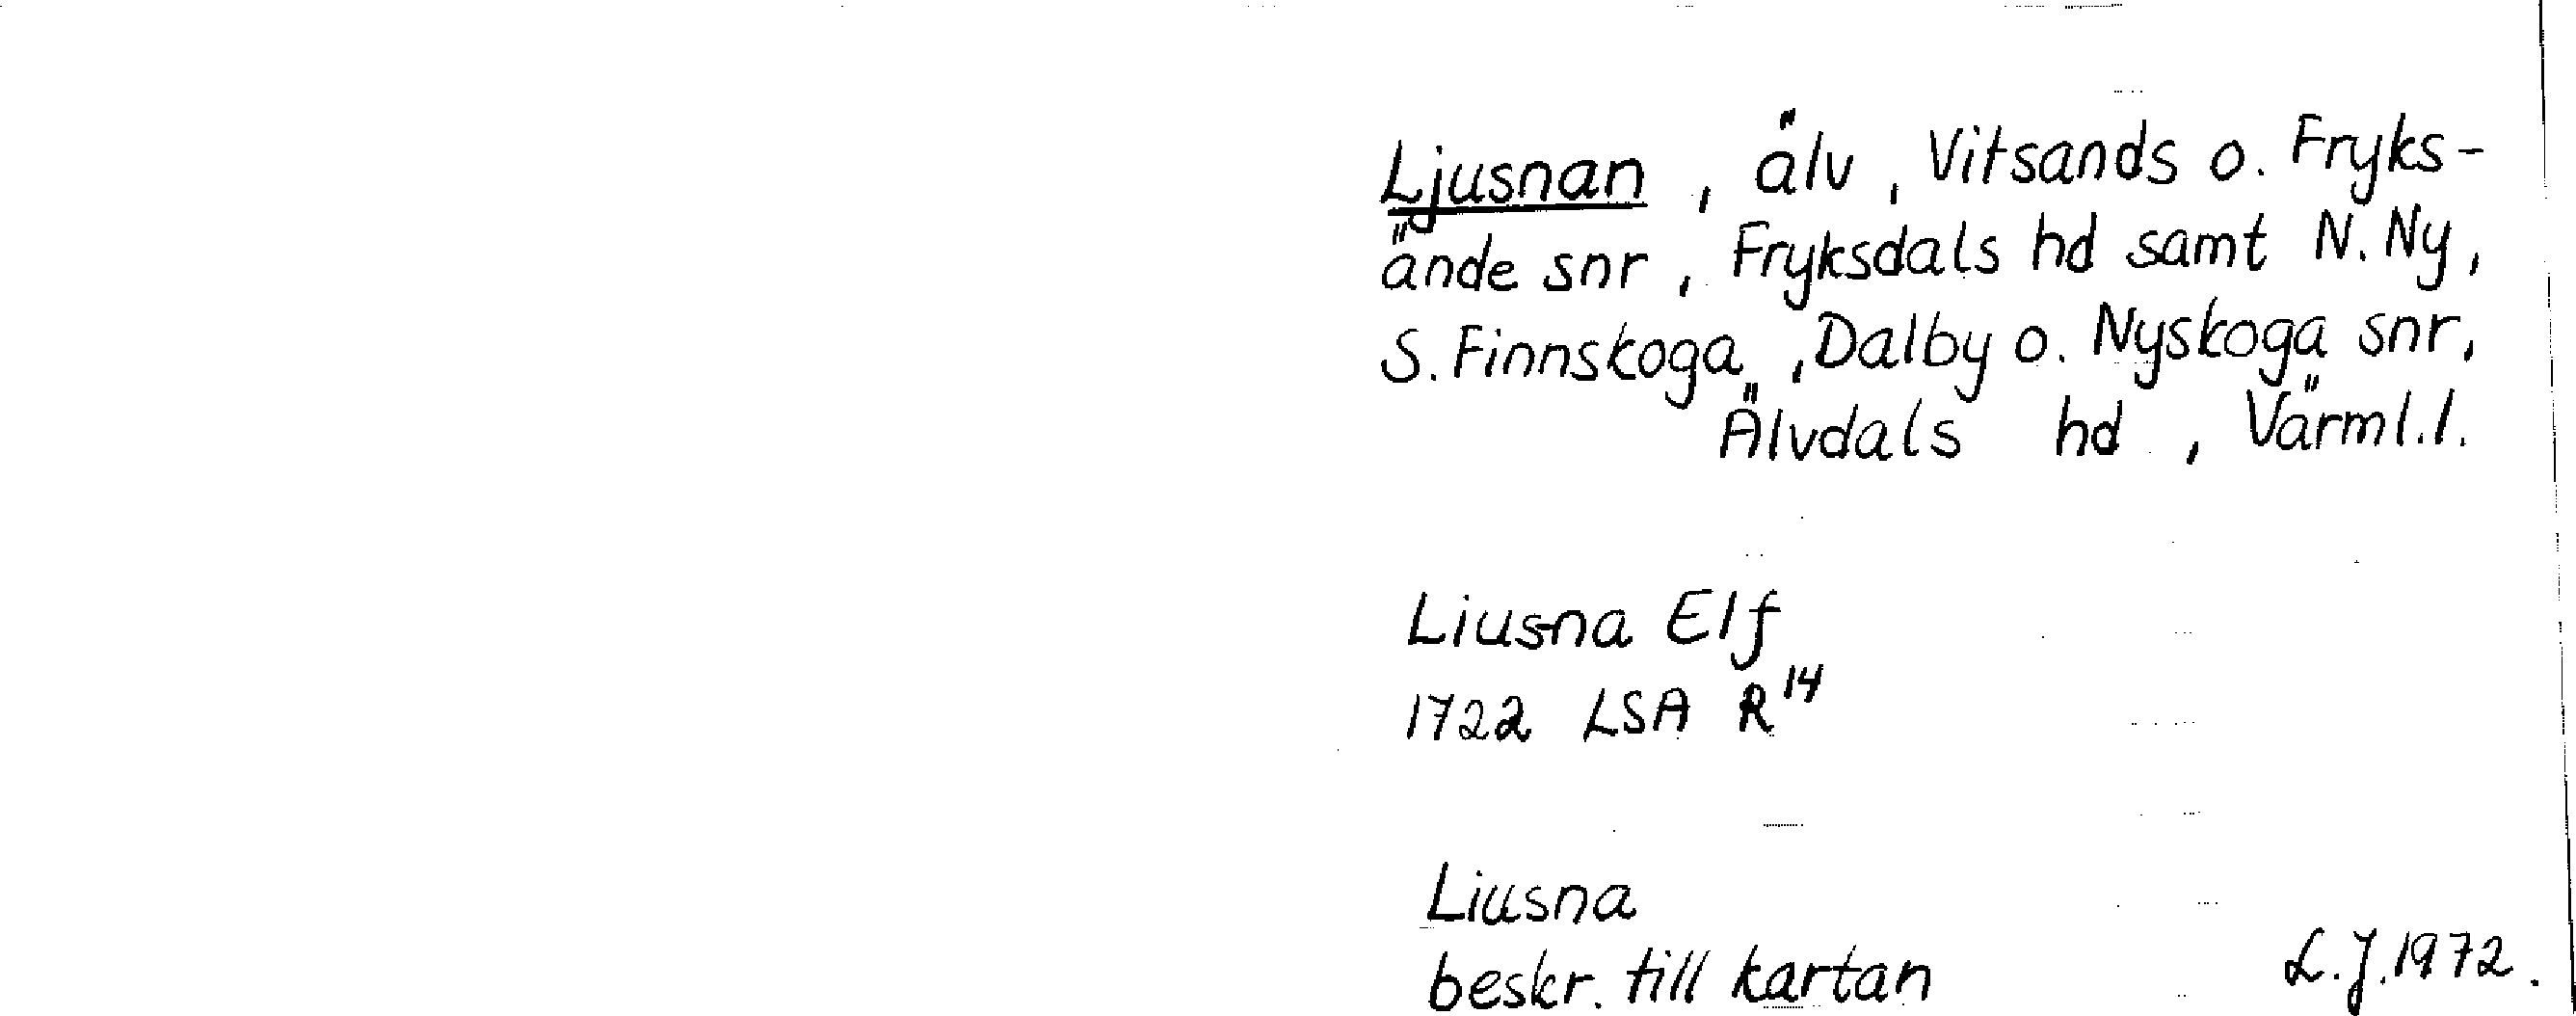 Ljusnan, älv, Vitsands o. Fryks-
ände snr, Fryksdals hd samt N. Ny,
S. Finnskoga, Dalby o. Nyskoga snr,
Älvdals hd, Värml.l.
Liusna Elf
1722 LSA R14
Liusna
beskr. till kartan
L.J. 1972.